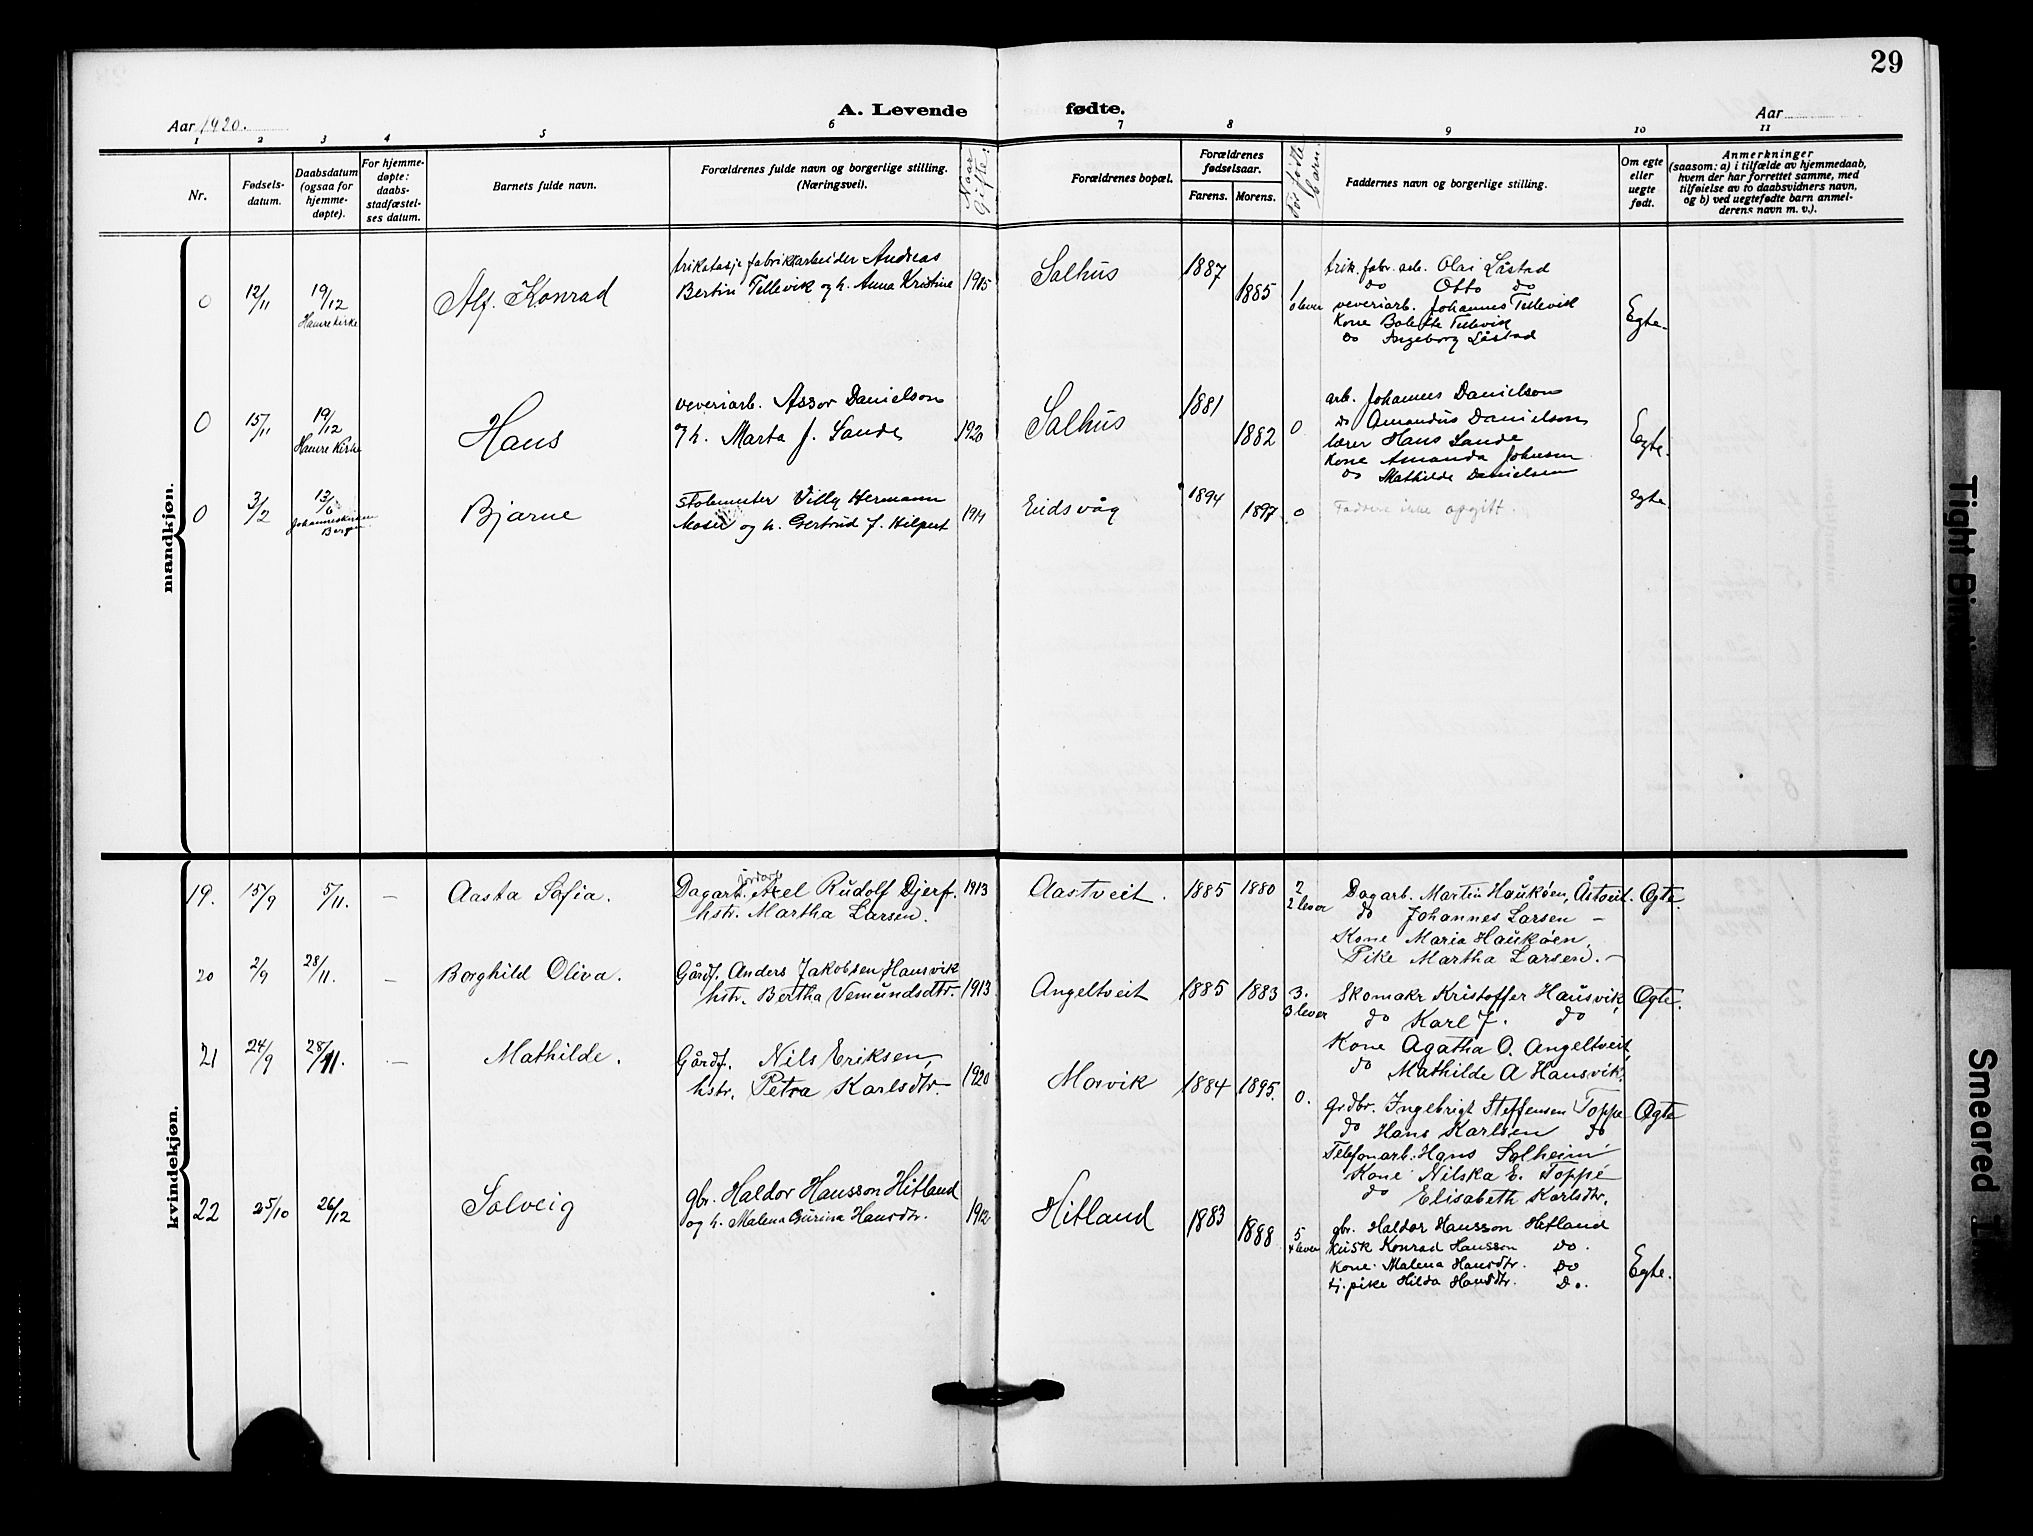 29
A. Levende fødte.
Aar 1920. Aar
1 2 3 4 5 6 7 8 9 10 11
Nr.
Fødsels-
datum.
Daabsdatum
(ogsaa for
hjemme-
døpte).
For hjemme-
døpte:
daabs-
stadfæstel-
ses datum.
Barnets fulde navn.
Forældrenes fulde navn og borgerlige stilling.
(Næringsvei).
Naar
Gifte.
Forældrenes bopæl.
Forældrenes
fødselsaar.
Farens. Morens.
Før fødte
barn.
Faddernes navn og borgerlige stilling.
Om egte
eller
uegte
født.
Anmerkninger
(saasom: a) i tilfælde av hjemmedaab,
hvem der har forrettet samme, med
tilføielse av to daabsvidners navn,
og b) ved uegtefødte barn anmel-
derens navn m. v.).
mandkjøn.
0 12/11 19/12 Alf Konrad
Hamre kirke
trikotasje fabrikkarbeider Andreas
Bertin Tellevik og h. Anna Kristine 1915
Salhus 1887 1885 1
lever
trik. fabr. arb. Olai Låstad
do Otto do
veveriarb. Johannes Tellevik
Kone Bolette Tellevik
do Ingeborg Låstad
Egte.
0 15/11 19/12 Hans
Hamre Kirke
veveriarb. Assor Danielson
og h. Marta J. Sande 1920
Salhus 1881 1882 0
arb. Johannes Danielson
do Amandus Danielson
lærer Hans Sande
Kone Amanda Johnson
do Mathilde Danielsen
Egte.
0 3/2 13/6 Bjarne
Johanneskirken
Bergen
Villy Hermann
og h. Gertrud f. Hilpert 1919
Eidsvåg 1894 1897 0
Faddere ikke opgitt.
egte.
kvindekjøn.
19. 15/9 5/11. — Aasta Sofia.
Dagarb. Axel Rudolf Djerf. 1913
hstr. Martha Larsen.
Aastveit. 1885 1880 2
2 lever
Dagarb. Martin Haukøen, Åstveit.
do Johannes Larsen —
Kone Maria Haukøen.
Pike Martha Larsen. —
Ægte.
20 2/9 28/11. — Borghild Oliva.
Gårdf. Anders Jakobsen Hausvik
hstr. Bertha Vemundsdtr. 1913
Angeltveit 1885 1883 3.
3 lever
Skomakr Kristoffer Hausvik,
do Karl J. do
Kone Agatha O. Angeltveit,
do Mathilde A Hausvik.
Ægte.
21 24/9 28/11. — Mathilde.
Gårdf. Nils Eriksen,
hstr. Petra Karlsdtr. 1920
Morvik 1884 1895. 0.
Grdbr. Ingebrigt Steffensen Toppe
do Hans Karlsen do
Telefonarb. Hans Solheim
Kone Nilska E. Toppe
do Elisabeth Karlsdtr.
Ægte
22 25/10 26/12 Solveig
gbr. Haldor Hansson Hitland
og h. Malena Gurina Hansdtr. 1912
Hitland 1883 1888 5
4 lever
gbr. Haldor Hansson Hitland
Kusk Konrad Hansson do.
Kone Malena Hansdtr. Do
tj. pike Hilda Hansdtr. Do.
Egte.
Tight Bin
Smeared